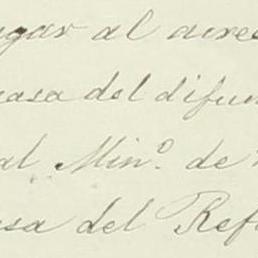 ugar al acree
casa del difun
al Min.º de
sa del Ref